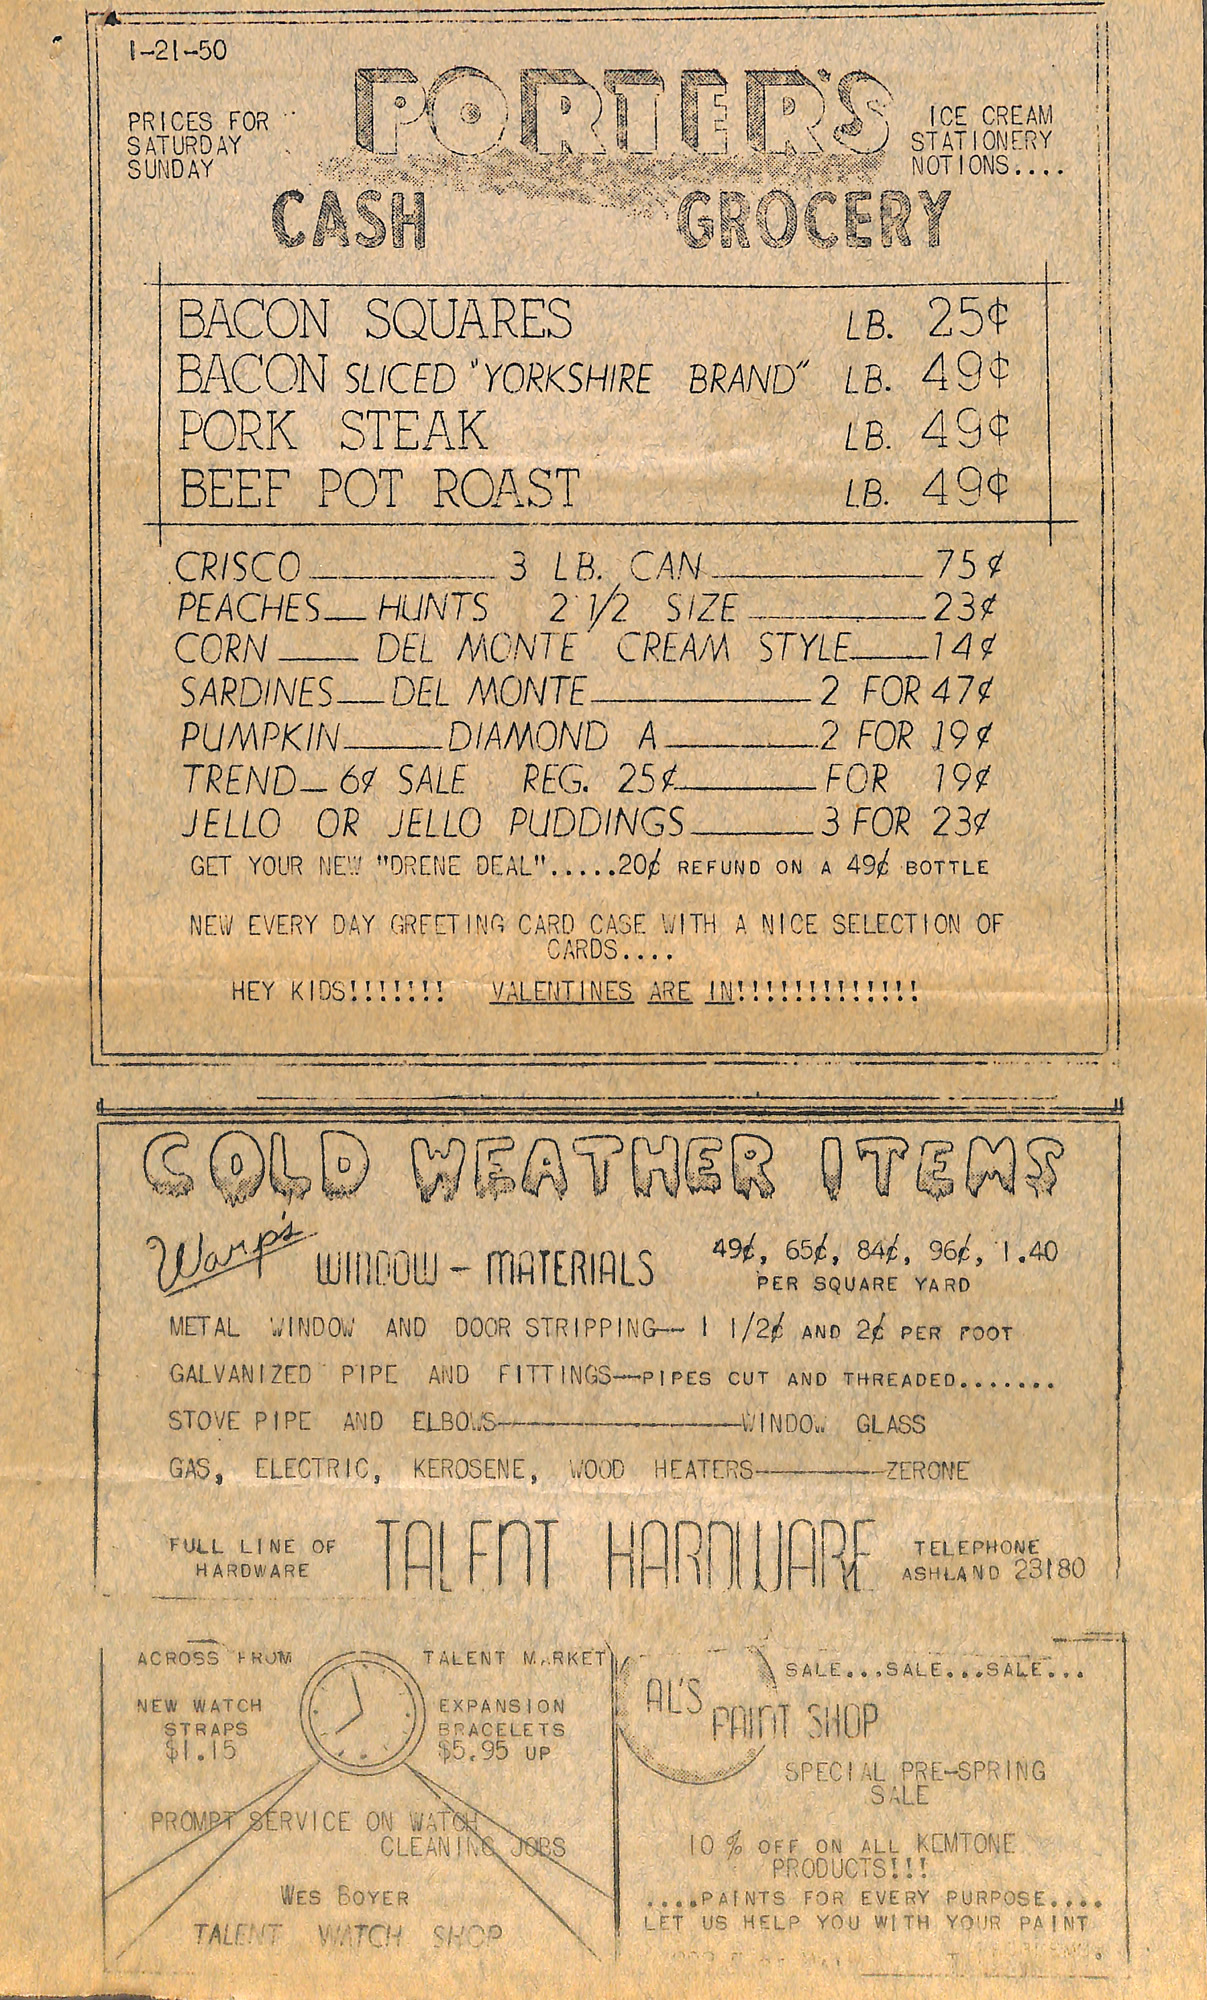 1-21-50
PRICES FOR
SATURDAY
SUNDAY
PORTER'S
ICE CREAM
STATIONERY
NOTIONS....
CASH GROCERY
BACON SQUARES LB. 25¢
BACON SLICED "YORKSHIRE BRAND" LB. 49¢
PORK STEAK LB. 49¢
BEEF POT ROAST LB. 49¢
CRISCO 3 LB. CAN 75¢
PEACHES HUNTS 2 1/2 SIZE 23¢
CORN DEL MONTE CREAM STYLE 14¢
SARDINES DEL MONTE 2 FOR 47¢
PUMPKIN DIAMOND A 2 FOR 19¢
TREND 6¢ SALE REG. 25¢ FOR 19¢
JELLO OR JELLO PUDDINGS 3 FOR 23¢
GET YOUR NEW "DRENE DEAL".....20¢ REFUND ON A 49¢ BOTTLE
NEW EVERY DAY GREETING CARD CASE WITH A NICE SELECTION OF
CARDS....
HEY KIDS!!!!!!! VALENTINES ARE IN!!!!!!!!!!!!!
COLD WEATHER ITEMS
Warp's WINDOW - MATERIALS 49¢, 65¢, 84¢, 96¢, 1.40
PER SQUARE YARD
METAL WINDOW AND DOOR STRIPPING-- 1 1/2¢ AND 2¢ PER FOOT
GALVANIZED PIPE AND FITTINGS--PIPES CUT AND THREADED.......
STOVE PIPE AND ELBOWS WINDOW GLASS
GAS, ELECTRIC, KEROSENE, WOOD HEATERS ZERONE
FULL LINE OF
HARDWARE
TALENT HARDWARE
TELEPHONE
ASHLAND 23180
ACROSS FROM TALENT MARKET
NEW WATCH
STRAPS
$1.15
EXPANSION
BRACELETS
$5.95 UP
PROMPT SERVICE ON WATCH
CLEANING JOBS
WES BOYER
TALENT WATCH SHOP
AL'S
PAINT SHOP
SALE...SALE...SALE...
SPECIAL PRE-SPRING
SALE
10 % OFF ON ALL KEMTONE
PRODUCTS!!!
....PAINTS FOR EVERY PURPOSE....
LET US HELP YOU WITH YOUR PAINT